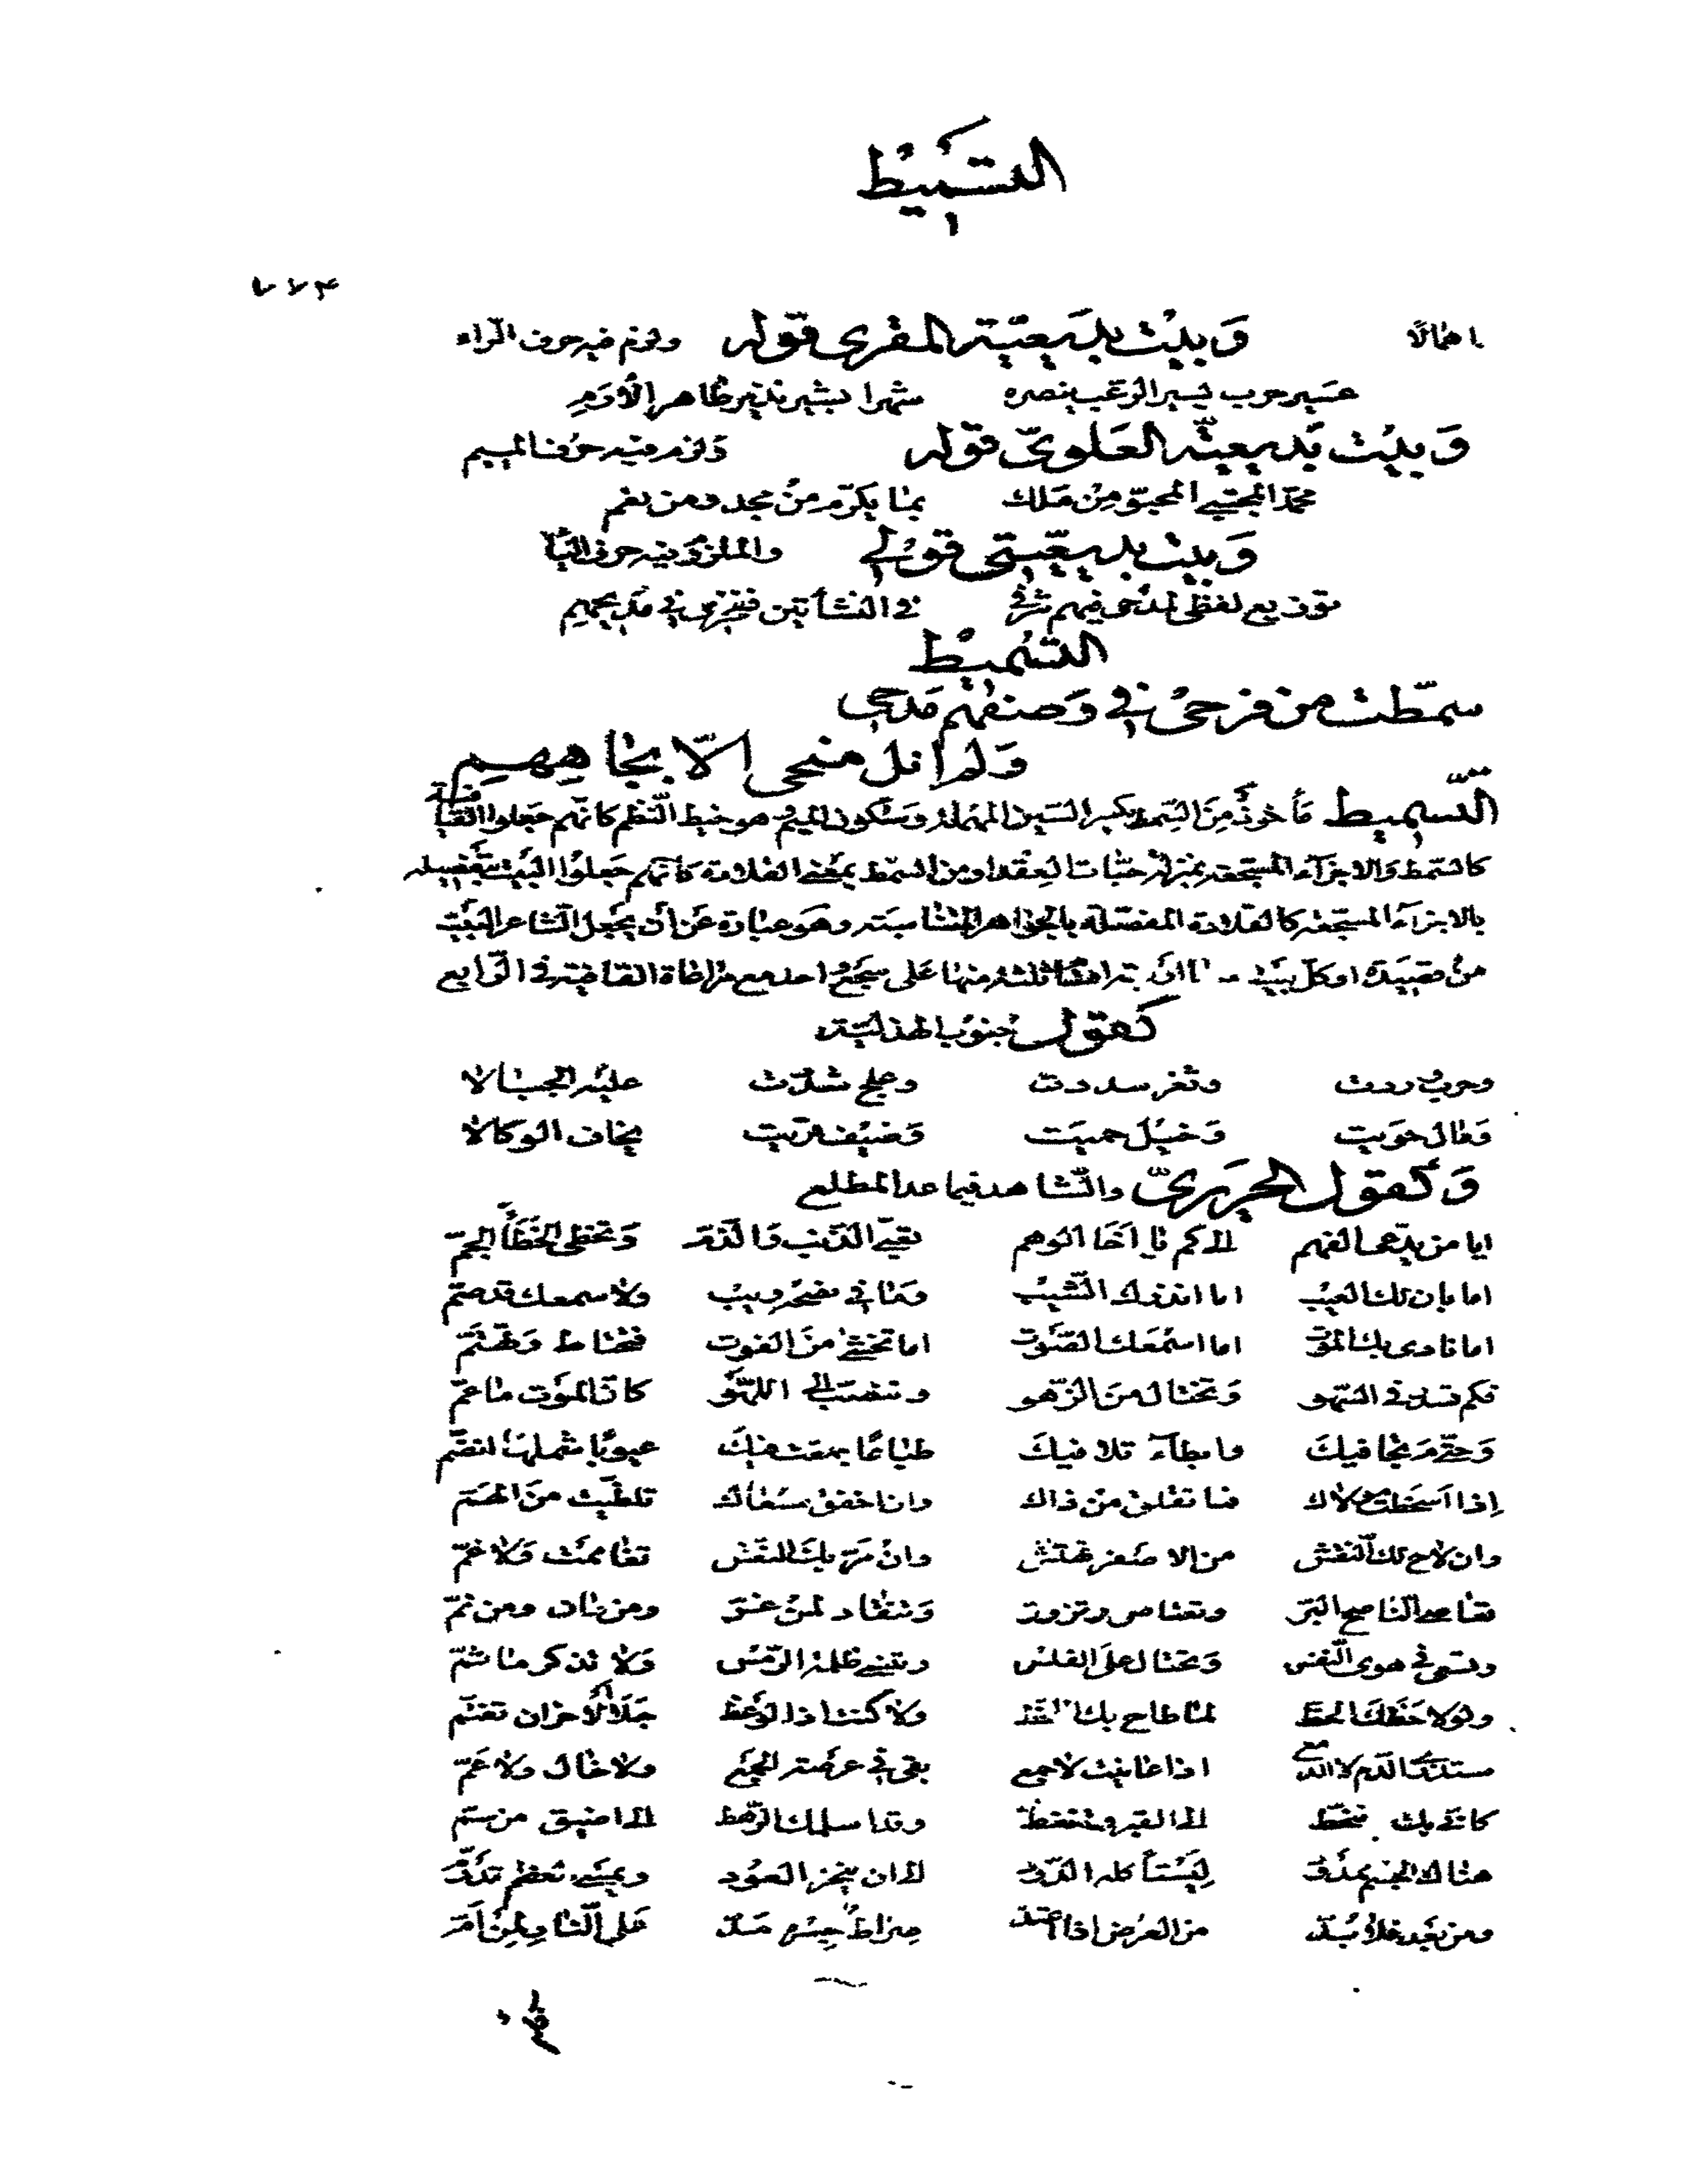 التسميط
٧٧٤
اهمالا وبيت بديعية المقرى قوله ولزم فيه حرف الراء
عسير حرب يسير الرعب ينصره شهرا بشير نذير ظاهر الأدم
وبيت بديعية العلوىّ قوله ولزم فيه حرف الميم
محمّد المجتبى المحبوّ من ملك بما يكرّم من مجد ومن نعم
وبيت بديعيّتى قولى والملزوم فيه حرف الياء
توزيع لفظى لمدحى فيهم شرفى فى النشأتين ففخرى فى مديحهم
التسميط
سمّطت من فرحى فى وصفهم مدحى
ولم انل منحى الّا بجاههم
التّسميط مأخوذ من السّمط بكسر السّين المهملة وسكون الميم وهو خيط النّظم كانّهم جعلوا القافية
كالسّمط والاجزآء المسجّعة بمنزلة حبّات العقد او من السّمط بمعنى القلادة كأنّهم جعلوا البيت بتفصيله
بالاجزآء المسجّعة كالقلادة المفصّلة بالجواهر المتناسبة وهو عبارة عن أن يجعل الشّاعر البيت
من قصيدة او كلّ بيت اربعة اقسام ثلثة منها على سجع واحد مع مراعاة القافية فى الرّابع
كقول جنوب الهذليّة
وحرب وردت وثغر سددت وعلج شددت عليه الحبالا
ومال حويت وخيل حميت وضيف قريت يخاف الوكالا
وكقول الحريرىّ والشّاهد فيما عدا المطلع
ايا من يدّعى الفهم الى كم يا اخا الوهم تعبّى الذّنب والذّمّ وتخطى الخطأ الجمّ
اما بان لك العيب اما انذرك الشّيب وما فى نصحه ريب ولا سمعك قد صمّ
اما نادى بك الموت اما اسمعك الصّوت اما تخشى من الفوت فتحتاط وتهتمّ
فكم تسدر فى السّهو وتختال من الزّهو وتنصبّ الى اللّهو كانّ الموت ما عمّ
وحتّى م تجافيك وابطآء تلافيك طباعا جمعت فيك عيوبا شملها انضمّ
إذا اسخطت مولاك فما تقلق من ذاك وان اخفق مسعاك تلظّيت من الهمّ
وان لاح لك النّقش من الاصفر تهتشّ وان مرّ بك النّعش تغاممت ولا غمّ
تعاصى النّاصح البرّ وتعتاص وتزورّ وتنقاد لمن غرّ ومن مان ومن نمّ
وتسعى فى هوى النّفس وتحتال على الفلس وتنسى ظلمة الرّمس ولا تذكر ما ثمّ
ولو لاحظك الحظّ لما طاح بك اللّحظ ولا كنت اذا الوعظ جلا الأحزان تغتمّ
ستذرى الدّم لا الدّمع اذا عاينت لا جمع يقى فى عرصة الجمع ولا خال ولا عمّ
كانّى بك تنحطّ الى القبر وتنغطّ وقد اسلمك الرّهط الى اضيق من سمّ
هناك الجسم ممدود ليستأكله الدّود الى ان ينخر العود ويمسى العظم قد رمّ
ومن بعد فلا بدّ من العرض اذا اعتدّ صراط جسره مدّ على النّار لمن أمّ